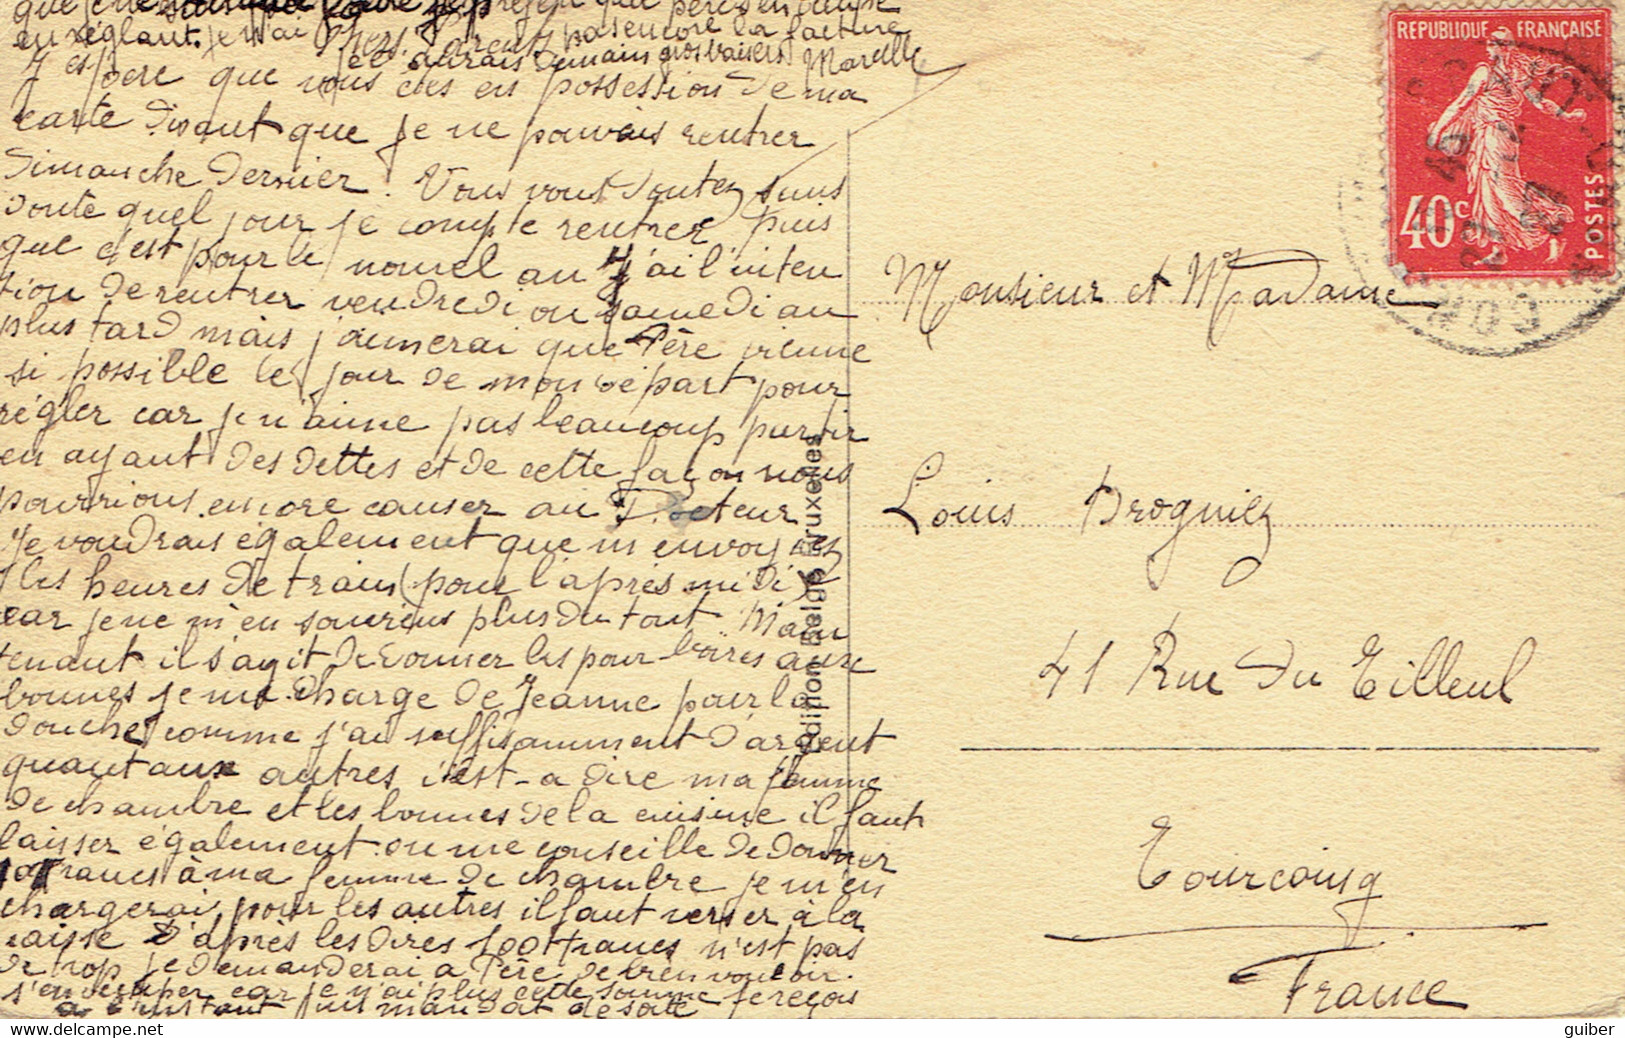 en réglant. je n'ai pas encore la facture
Chers Parents
je l'aurais demain gros baisers Marcelle
J'espère que vous êtes en possession de ma
carte disant que je ne pouvais rentrer
dimanche dernier. Vous vous doutez sans
doute quel jour je compte rentrer, puis
que c'est pour le nouvel an j'ai l'inten
tion de rentrer vendredi ou samedi au
plus tard mais j'aimerai que Père vienne
si possible le jour de mon départ pour
régler car je n'aime pas beaucoup partir
en ayant des dettes et de cette façon nous
pourrions encore causer au Docteur
Je voudrais également que m'envoyiez
les heures de train (pour l'après midi)
car je ne m'en souviens plus du tout Main
tenant il s'agit de donner les pourboires aux
bonnes je me charge de Jeanne pour la
douche comme j'ai suffisamment d'argent
quant aux autres c'est-a dire ma femme
de chambre et les bonnes de la cuisine il faut
laisser également on me conseille de donner
francs à ma femme de chambre je m'en
chargerai, pour les autres il faut verser à la
caisse d'après les dires 100 francs n'est pas
de trop je demanderai a Père de bien vouloir
s'en occuper car je n'ai plus cette somme je reçois
a l'instant mandat de
Edition Belge Bruxelles
REPUBLIQUE FRANÇAISE
40c
POSTES
Monsieur et Madame
Louis Drogniez
41 Rue du Tilleul
Tourcoing
France
guiber